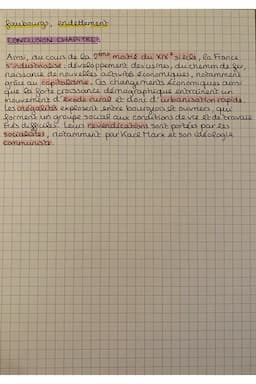 faubourgs, endettement
CONCLUSION CHAPITRE:
Ainsi, au cours de la 2ème moitié du XIXe siècle, la France
s'industrialise: développement des usines, du chemin de fer,
naissance de nouvelles activités économiques, notamment
grâce au capitalisme. Ces changements économiques ainsi
que la forte croissance démographique entraînent un
mouvement d'exode rural et donc d'urbanisation rapide.
Les inégalités explosent entre bourgeois et ouvriers, qui
forment un groupe social aux conditions de vie et de travail
très difficiles. Leurs revendications sont portées par les
socialistes, notamment par Karl Marx et son idéologie
communiste.